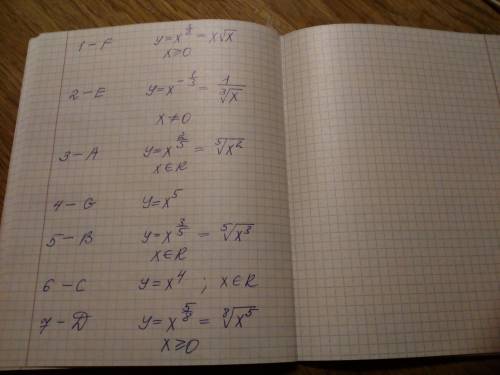 1 – F y = x^{3/2} = x√x
x ≥ 0
2 – E y = x^{-1/3} = 1/∛x
x ≠ 0
3 – A y = x^{2/5} = ⁵√x²
x ∈ R
4 – G y = x⁵
5 – B y = x^{3/5} = ⁵√x³
x ∈ R
6 – C y = x⁴ ; x ∈ R
7 – D y = x^{5/8} = ⁸√x⁵
x ≥ 0